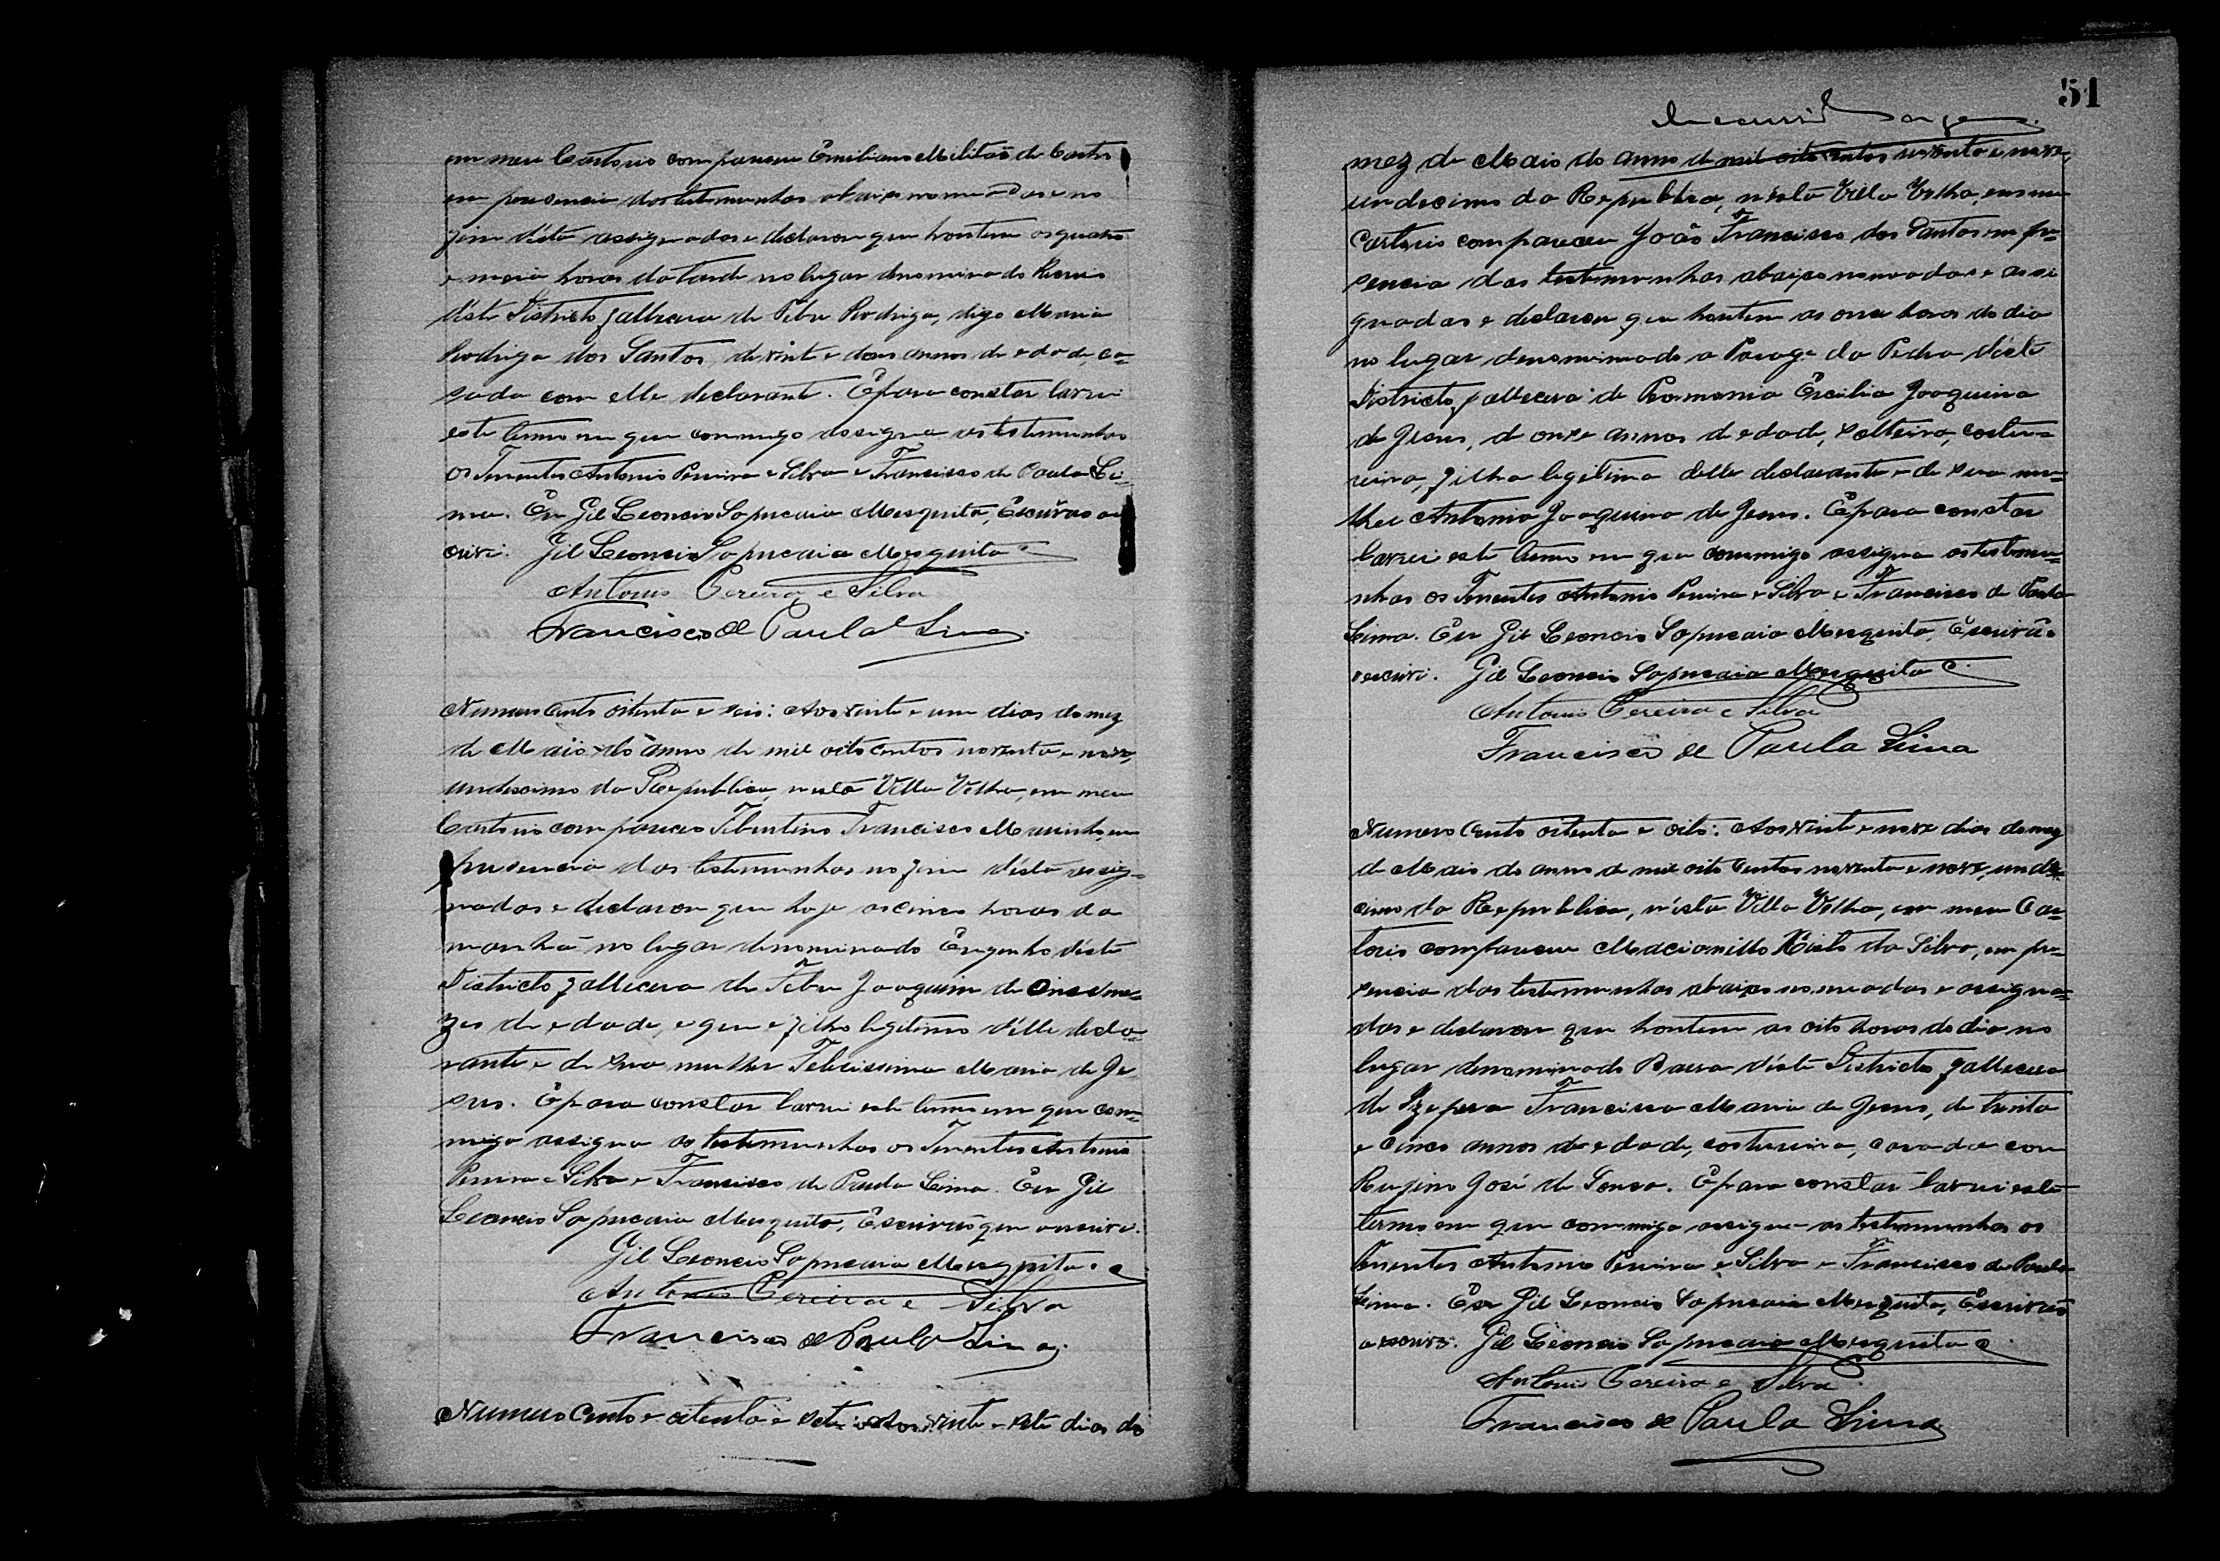 em meu Cartorio compareceu Emiliano Militão de Castro
em presencia das testemunhas abaixo nomeadas e no
fim d'éste assignadas e declarou que hontem as quatro
e meia horas da tarde no lugar denominado
d'éste Districto falleceu de Febre Rodrigo, digo Maria
Rodrigo dos Santos, de vinte e dous annos de edade, ca-
sada com elle declarante. E para constar lavrei
este termo em que commigo assigna as testemunhas
os Tenentes Antonio Pereira e Silva e Francisco de Paula Li-
ma. Eu Gil Leoncio Sapucaia Mesquita, Escrivão o es
crivi. Gil Leoncio Sapucaia Mesquita
Antonio Pereira e Silva
Francisco de Paula Lima
Numero Cento oitenta e seis: Aos vinte e um dias do mez
de Maio do anno de mil oito centos noventa e nove,
undecimo da Republica, nesta Villa Velha, em meu
Cartorio compareceu Tibertino Francisco Marinho, em
presencia das testemunhas no fim d'ésta assig-
nadas e declarou que hoje as cinco horas da
manhã no lugar denominado Engenho d'éste
Districto falleceu de Febre Joaquim de onse me-
zes de edade, e que e filho legitimo d'elle decla-
rante e de sua mulher Felicissima Maria de Je
sus. E para constar lavrei este termo em que com-
migo assigna as testemunhas os Tenentes Antonio
Pereira e Silva e Francisco de Paula Lima. Eu Gil
Leoncio Sapucaia Mesquita, Escrivão que o escrivi.
Gil Leoncio Sapucaia Mesquita
Antonio Pereira e Silva
Francisco de Paula Lima
Numero Cento e oitenta e sete: Aos vinte e sete dias do
51
mez de Maio do anno de mil oito centos noventa e nove,
undecimo da Republica, n'ésta Villa Velha, em meu
Cartorio compareceu João Francisco dos Santos em pre-
sencia das testemunhas abaixo nomeadas e assi
gnadas e declarou que hontem as onse horas do dia
no lugar denominado a Passage da Pedra d'éste
Districto, falleceu de Ercilia Joaquina
de Jesus, de onze annos de edade, solteira, costu-
reira, filha legitima delle declarante e de sua mu-
lher Antonia Joaquina de Jesus. E para constar
lavrei este termo em que commigo assigna as testemu-
nhas os Tenentes Antonio Pereira e Silva e Francisco de Paula
Lima. Eu Gil Leoncio Sapucaia Mesquita, Escrivão
o escrivi. Gil Leoncio Sapucaia Mesquita
Antonio Pereira e Silva
Francisco de Paula Lima
Numero Cento oitenta e oito: Aos vinte e nove dias do mez
de Maio do anno de mil oito centos noventa e nove, unde-
cimo da Republica, n'ésta Villa Velha, em meu Car-
torio compareceu da Silva, em pre-
sencia das testemunhas abaixo nomeadas e assigna-
das e declarou que hontem as oito horas do dia no
lugar denominado Barra d'éste Districto falleceu
de Francisca Maria de Jesus, de trinta
e cinco annos de edade, costureira, casada com
Rufino José de Souza. E para constar lavrei este
termo em que commigo assigna as testemunhas os
Tenentes Antonio Pereira e Silva e Francisco de Paula
Lima. Eu Gil Leoncio Sapucaia Mesquita, Escrivão
o escrivi. Gil Leoncio Sapucaia Mesquita
Antonio Pereira e Silva
Francisco de Paula Lima